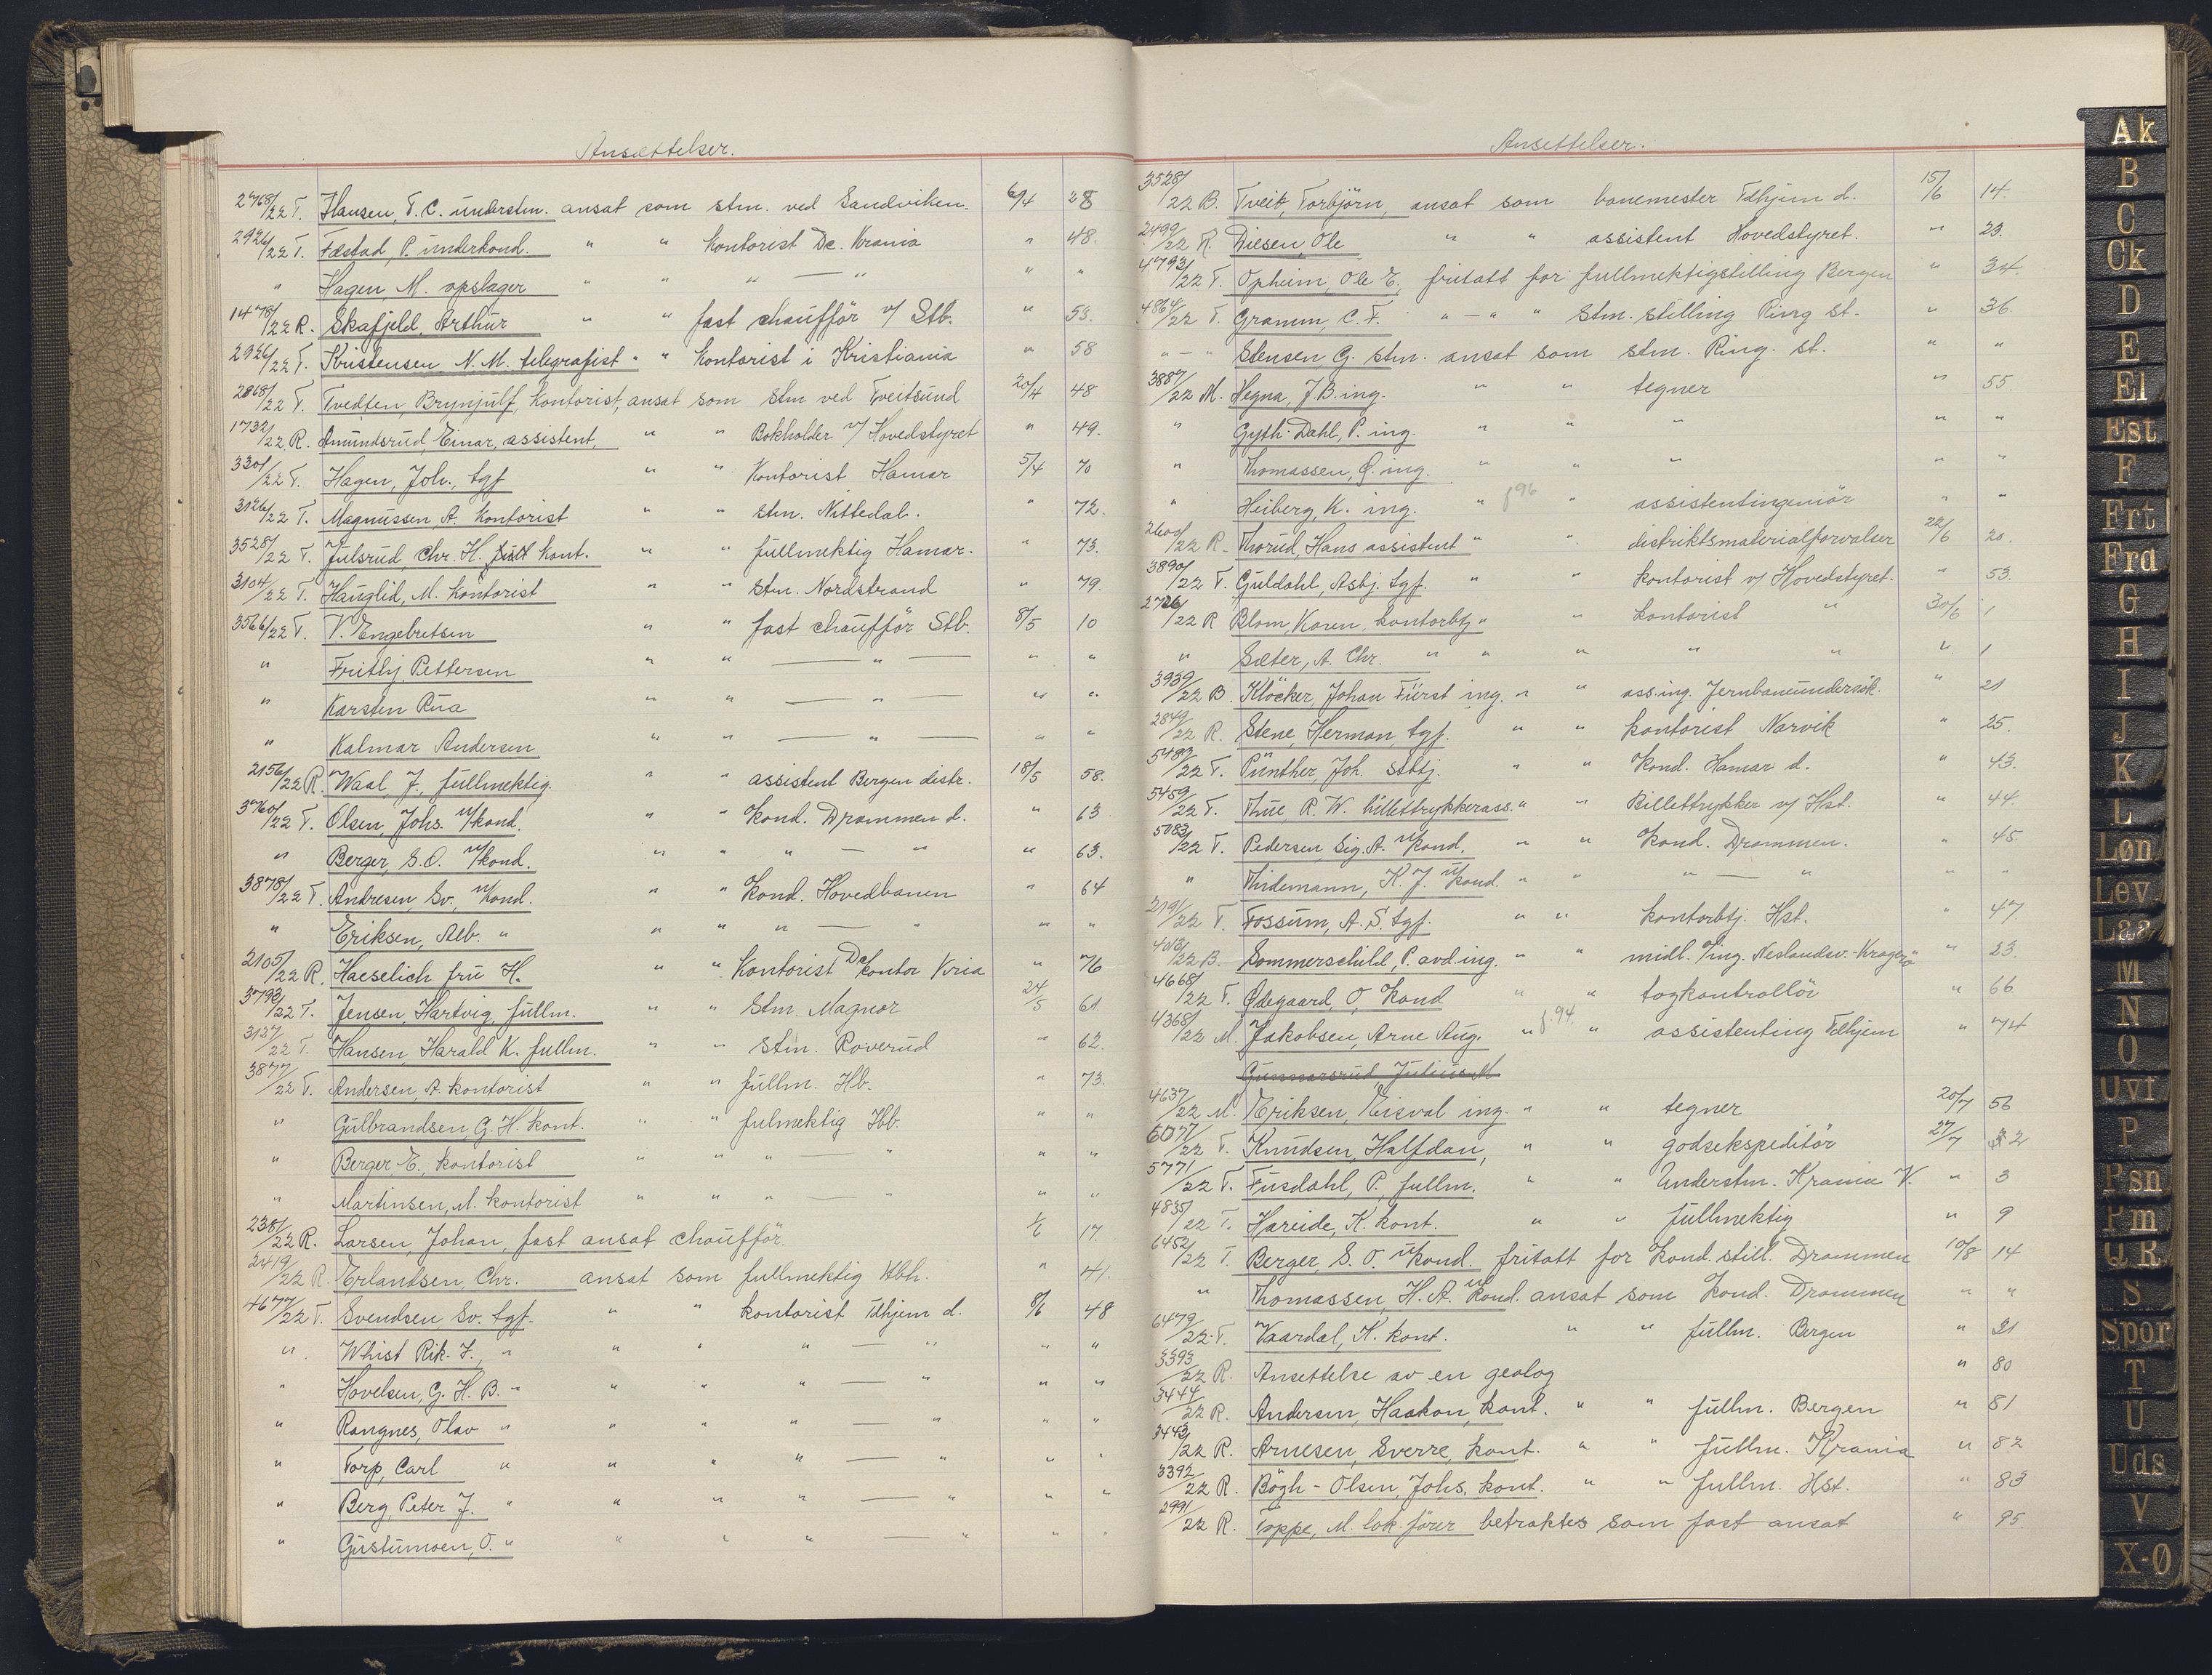 Ansættelser.
2768/22 T. Hansen, T. C. understm. ansat som stm. ved Sandviken. 6/4 28
2926/22 T. Fæstad, P. underkond. " " kontorist Dc. Krania " 48.
" Hagen, M. opslager " " " — " " "
1478/22 R. Skafjeld, Arthur " " fast chaufför v/ Stb. " 53.
2926/22 T. Kristensen N. M. telegrafist " " kontorist i Kristiania " 58
2868/22 T. Tvedten Brynjulf, kontorist, ansat som stm ved Tveitsund 20/4 48
1732/22 R. Amundsrud, Einar, assistent, " " Bokholder v/ Hovedstyret " 49.
3301/22 T. Hagen, Joh., tgf " " Kontorist Hamar 5/4 70
3126/22 T. Magnussen, A. kontorist " " stm. Nittedal. " 72.
3528/22 T. Julsrud, Chr. H. kont. " " fullmektig Hamar. " 73.
3104/22 T. Hauglid, M. kontorist " " stm. Nordstrand " 79.
3566/22 T. V. Engebretsen " " fast chaufför Stb. 8/5 10
" Frithj. Pettersen " " — " — " "
" Karsten Rua " " — " — " "
" Kalmar Andersen " " — " — " "
2156/22 R. Waal, J., fullmektig " " assistent Bergen distr. 18/5 58.
3760/22 T. Olsen, Johs. u/kond. " " Kond. Drammen d. " 63
" Berger, S. O. u/kond. " " " — " " 63.
3878/22 T. Andresen, Sv., u/kond. " " Kond. Hovedbanen " 64
" Eriksen, Alb. " " " " — " " "
2105/22 R. Haeselich fru H. " " Kontorist Dc kontor Kria " 76
3793/22 T. Jensen, Hartvig, fullm. " " Stm. Magnor 24/5 61.
3127/22 T. Hansen, Harald K. fullm. " " stm. Roverud " 62.
3877/22 T. Andersen, A. kontorist " " fullm. Hb. " 73.
" Gulbrandsen, G. H. kont. " " fulmektig Hb. " "
" Berger E., kontorist " " " — " " "
" Martinsen, M. kontorist " " " — " " "
2381/22 R. Larsen, Johan, fast ansat chaufför. 1/6 17.
2419/22 R. Erlandsen, Chr. ansat som fullmektig Hbh. " 41.
4677/22 T. Svendsen Sv. tgf. " " kontorist Tdhjem d. 8/6 48
" Whist Rik. F. " " " " — " " "
" Hovelsen, G. H. B. " " " " — " " "
" Rangnes, Olav " " " " — " " "
" Torp, Carl " " " " — " " "
" Berg, Peter J. " " " " — " " "
" Gustumoen, O. " " " " — " " "
Ansettelser.
3528/22 B. Tveit, Torbjörn, ansat som banemester Tdhjem d. 15/6 14.
2499/22 R. Diesen, Ole " " assistent Hovedstyret. " 23.
4793/22 T. Opheim, Ole E., fritatt for fullmektigstilling Bergen " 34.
4864/22 T. Gramm, C. F. " — " " Stm. stilling Ring st. " 36.
" — " Stensen G. stm. ansat som stm. Ring. st. " "
3887/22 M. Hegna, J. B. ing. " " tegner " 55.
" Gyth-Dahl, P. ing. " " " " "
" Thomassen, Q. ing. " " " " "
" Heiberg, K. ing. " f 96 " assistentingeniör " "
2600/22 R. Thorud, Hans assistent " " distriktsmaterialforvalter 22/6 20.
3890/22 T. Guldahl, Asbj. tgf. " " kontorist v/ Hovedstyret. " 53.
2726/22 R Blom, Karen, kontorbtj " " kontorist " 30/6 1
" Sæter, A. Chr. " " " " " " 1
3939/22 B. Klöcker, Johan Fürst ing. " " ass.ing. Jernbaneundersök. " 21
2849/22 R. Stene, Herman, tgf. " " kontorist Narvik " 25.
5483/22 T. Günther, Joh. stbtj. " " Kond. Hamar d. " 43.
5459/22 T. Thue, R. W. billettrykkerass. " " Billettrykker v/ Hst. " 44.
5083/22 T. Pedersen, Sig. A. u/kond. " " Kond. Drammen. " 45
" Thidemann, K. J. u/kond. " " " — " " "
2191/22 T. Fossum, A. S. tgf. " " kontorbtj. Hst. " 47.
4013/22 B. Sommerschild, P. avd.ing. " " midl. o/ing. Neslandsv.-Kragerö " 23.
4668/22 T. Ødegaard, O, kond " " togkontrollör " 66
4368/22 M. Jakobsen, Arne Aug. " f. 94. " assistenting Tdhjem " 74
Gunnarsrud, Julius M
4637/22 M. Eriksen, Eisval ing. " " tegner 20/7 56
6077/22 T. Knudsen, Halfdan, " " godsekspeditör 27/7 32
5771/22 T. Fusdahl, P., fullm. " " Understm. Krania V. " 3
4835/22 T. Hareide, K. kont. " " fullmektig " 9
6452/22 T. Berger, S. O. u/kond. fritatt for kond. still. Drammen 10/8 14
" Thomassen, H. A. u/kond. ansat som Kond. Drammen " "
6479/22 T. Vaardal, K. kont. " " fullm. Bergen " 31
3393/22 R. Ansettelse av en geolog " 80
3444/22 R. Andersen, Haakon, kont. " " fullm. Bergen " 81
3443/22 R. Arnesen, Sverre, kont. " " fullm. Krania " 82
3392/22 R. Bögh-Olsen, Johs. kont. " " fullm. Hst. " 83
2991/22 R. Toppe, M. lok. förer betraktes som fast ansat " 95.
Ak
B
C
Ck
D
E
El
Est
F
Frt
Frd
G
H
I
J
K
L
Løn
Lev
Laa
M
N
O
Ovf
P
Psn
Pm
Q R
S
Spor
T
U
Uds
V
X-Ø